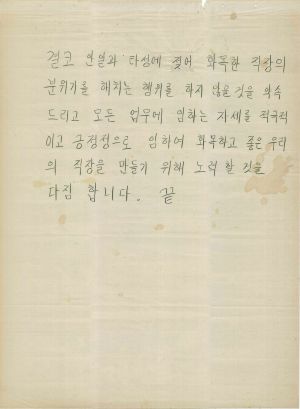 결코 안일과 타성에 젖어 화목한 직장의
분위기를 해치는 행위를 하지 않을 것을 약속
드리고 모든 업무에 임하는 자세를 적극적
이고 긍정정으로 임하여 화목하고 좋은 우리
의 직장을 만들기 위해 노력 할 것을
다짐 합니다. 끝